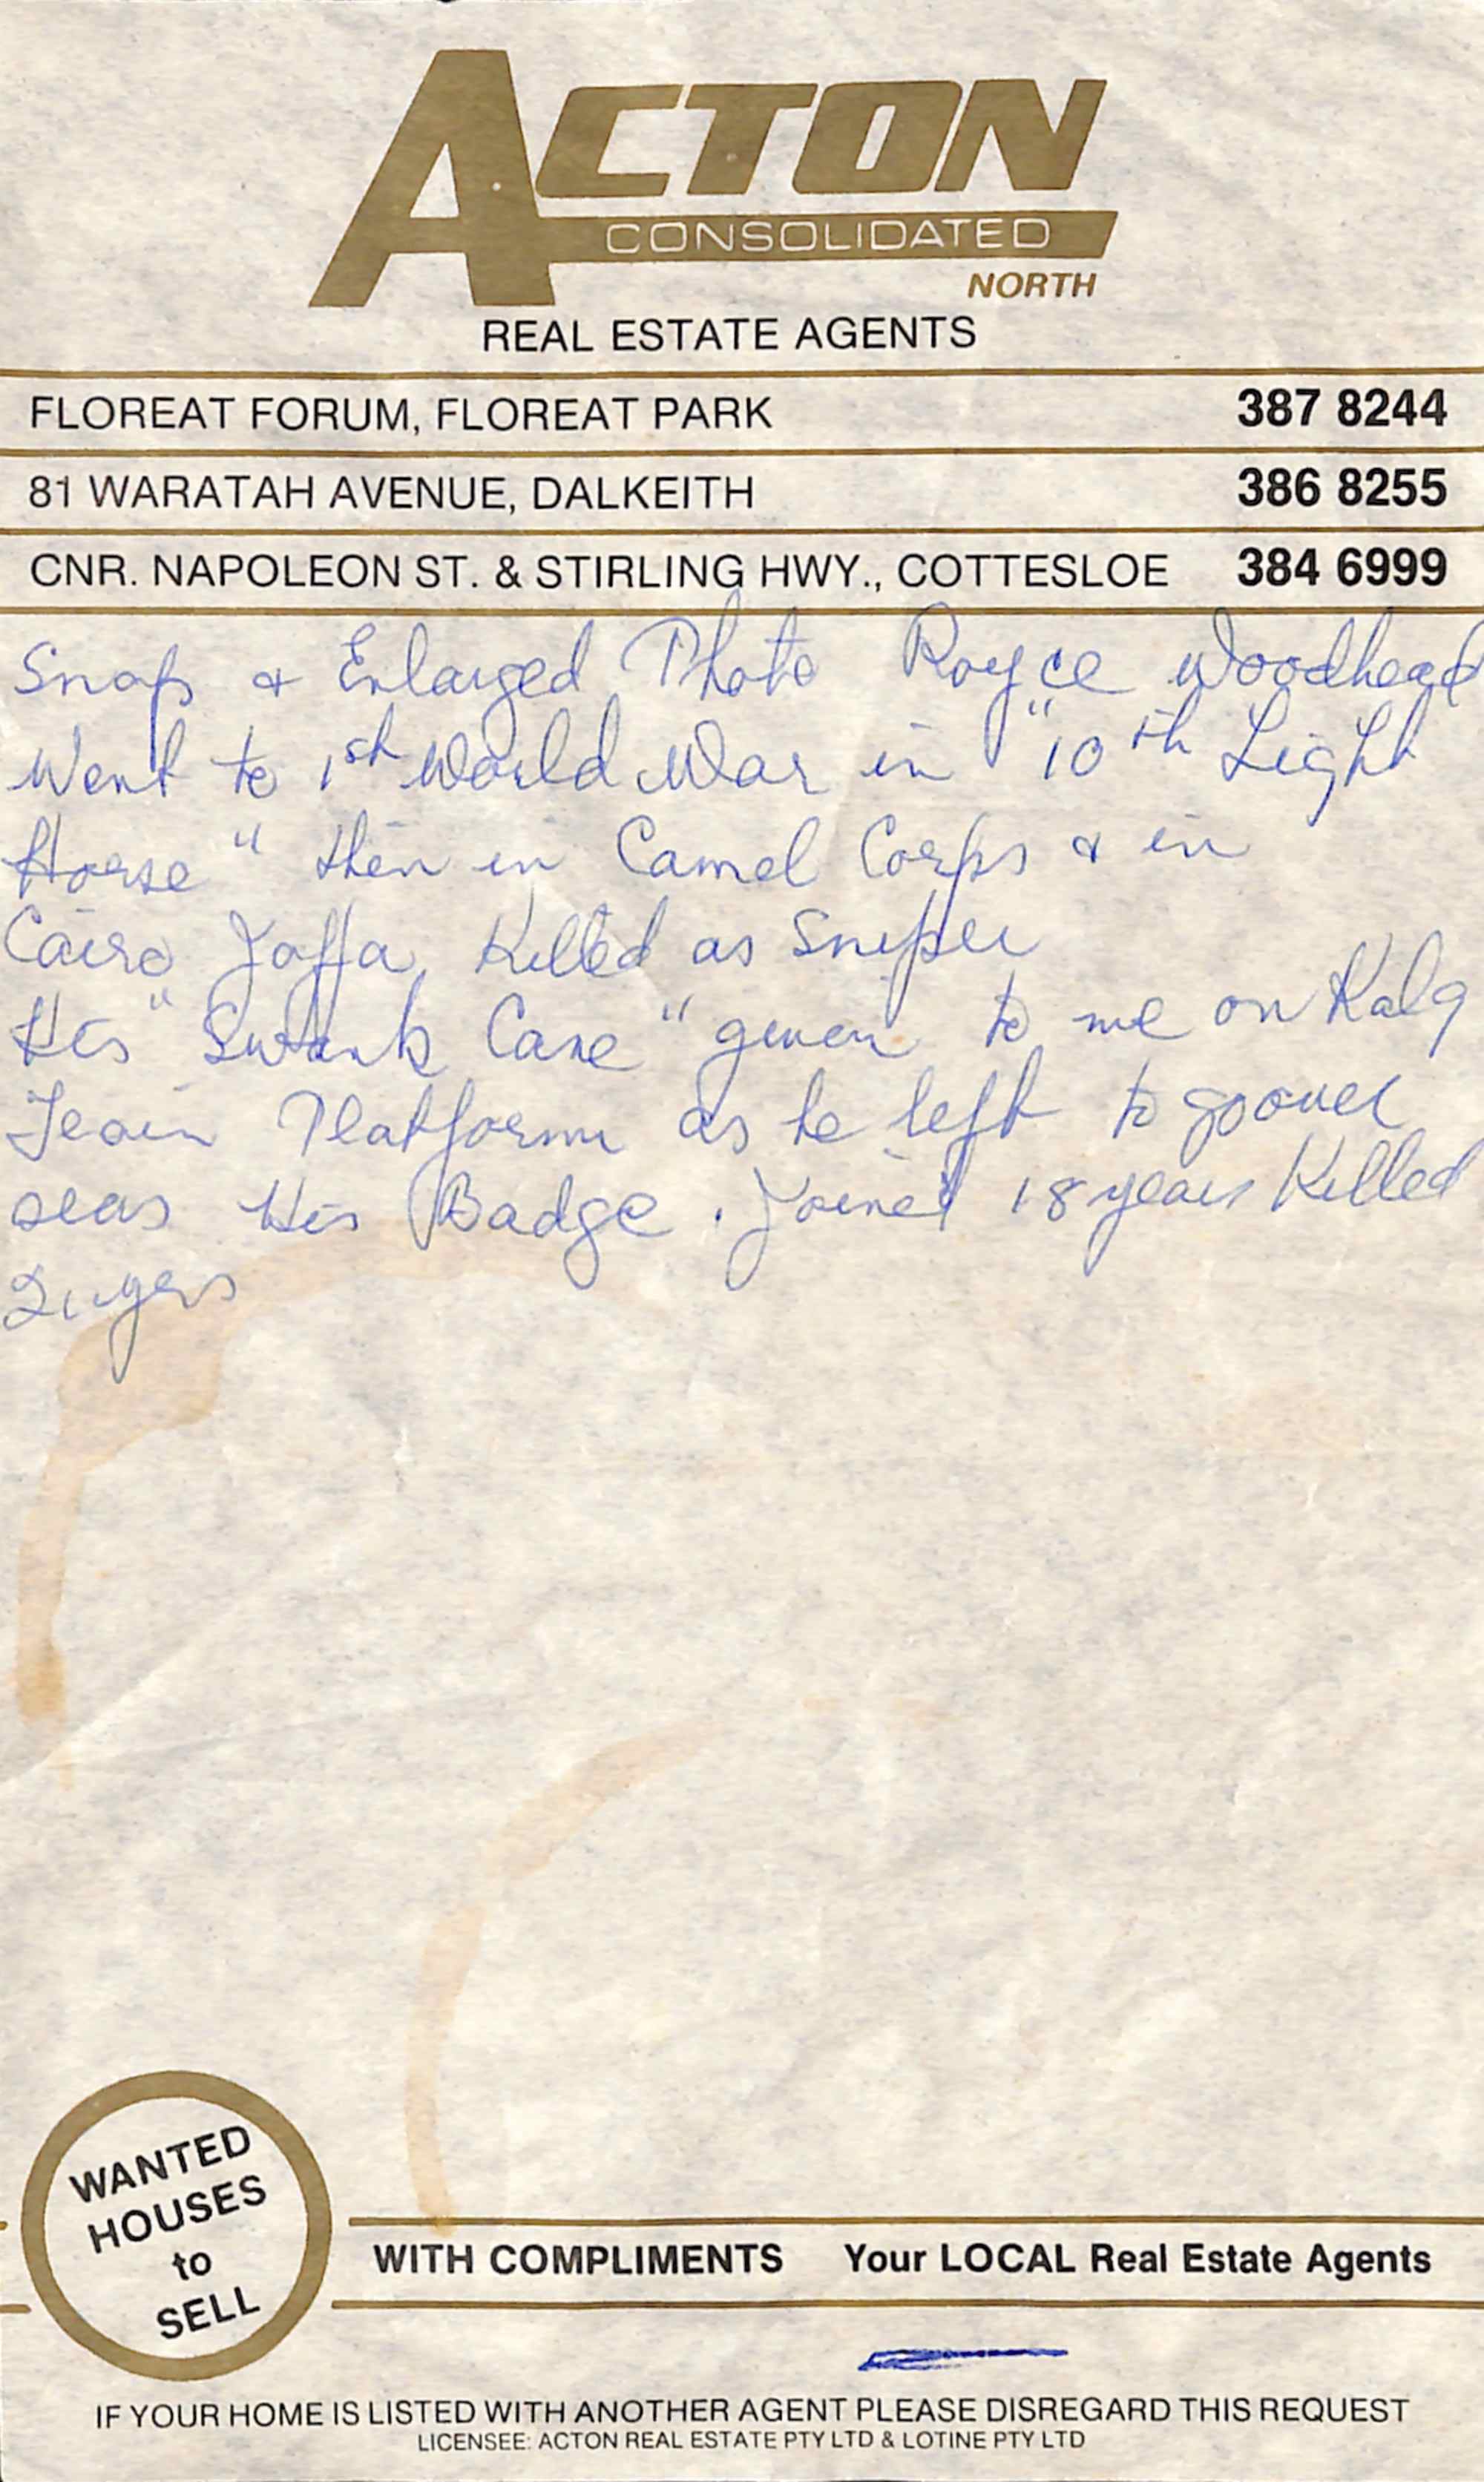 ACTON
CONSOLIDATED
NORTH
REAL ESTATE AGENTS
FLOREAT FORUM, FLOREAT PARK 387 8244
81 WARATAH AVENUE, DALKEITH 386 8255
CNR. NAPOLEON ST. & STIRLING HWY., COTTESLOE 384 6999
Snap & Enlarged Photo Royce Woodhead
Went to 1st World War in "10th Light
Horse" then in Camel Corps & in
Cairo Jaffa, Killed as Sniper
His "Swank Cane" given to me on Kalg
Train Platform as he left to go over
seas His Badge. Joined 18 years Killed
21 yrs
WANTED
HOUSES
to
SELL
WITH COMPLIMENTS Your LOCAL Real Estate Agents
IF YOUR HOME IS LISTED WITH ANOTHER AGENT PLEASE DISREGARD THIS REQUEST
LICENSEE: ACTON REAL ESTATE PTY LTD & LOTINE PTY LTD